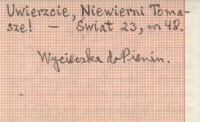 Uwierzcie, Niewierni Toma-
sze! — Świat 23, nr 48.
Wycieczka do Pienin.